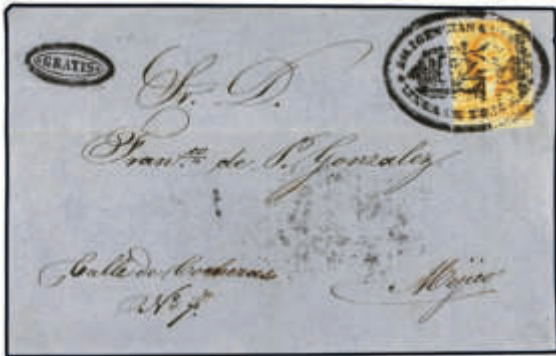 GRATIS
DILIGENCIAS
Sr. D.
Fran.co de P. Gonzalez
Calle de Cocheras
Nº 7.
Mejico